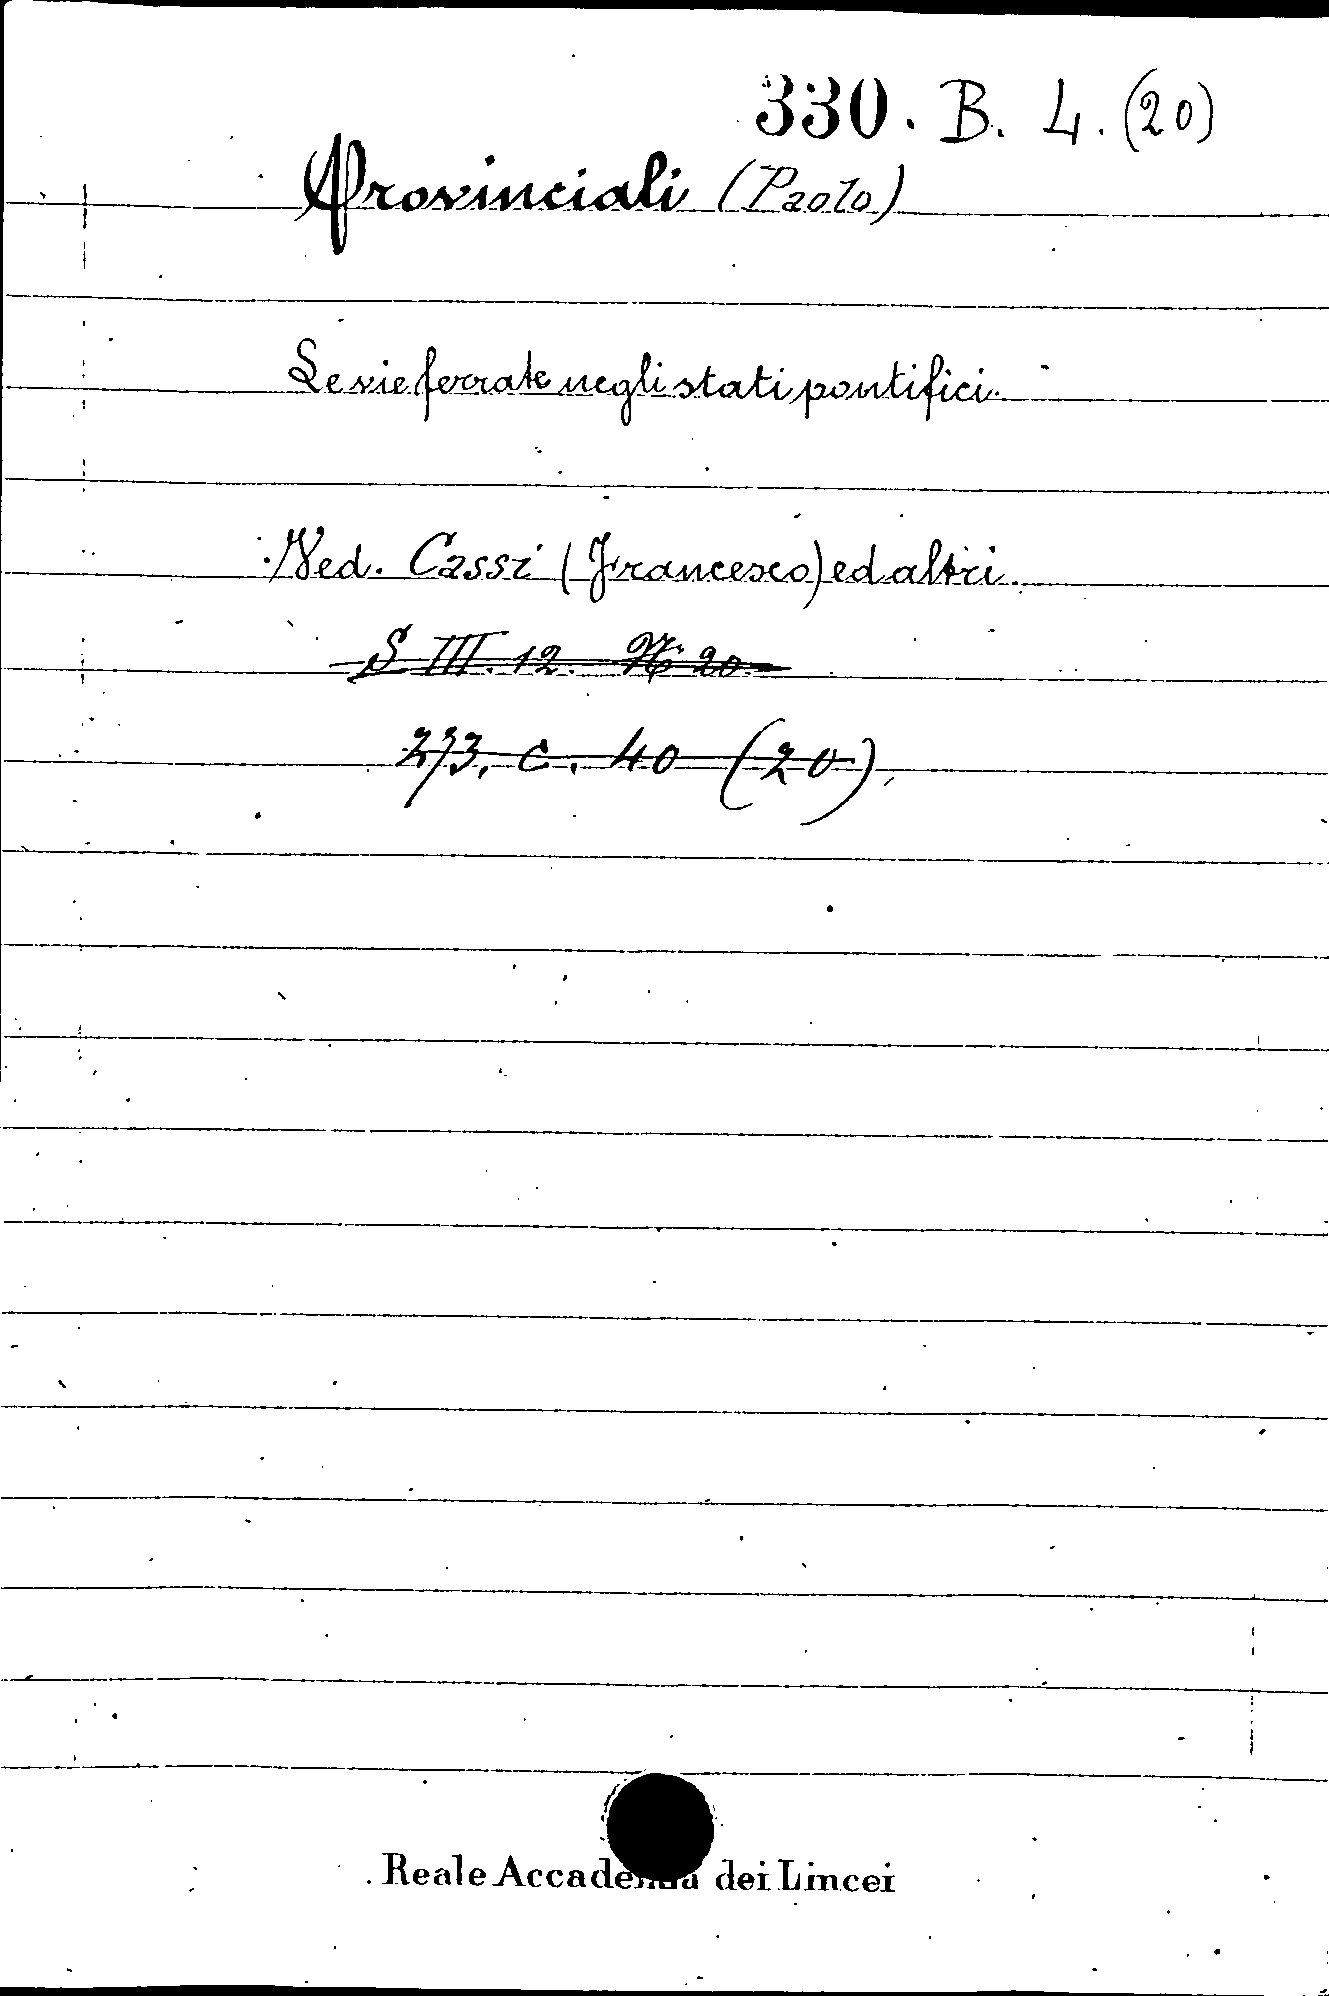 330. B. 4. (20)
Provinciali (Paolo)
Le vie ferrate negli stati pontifici.
Ved. Cassi (Francesco) ed altri.
S III. 12. N° 20.
273. C. 40 (20).
Reale Accademia dei Lincei